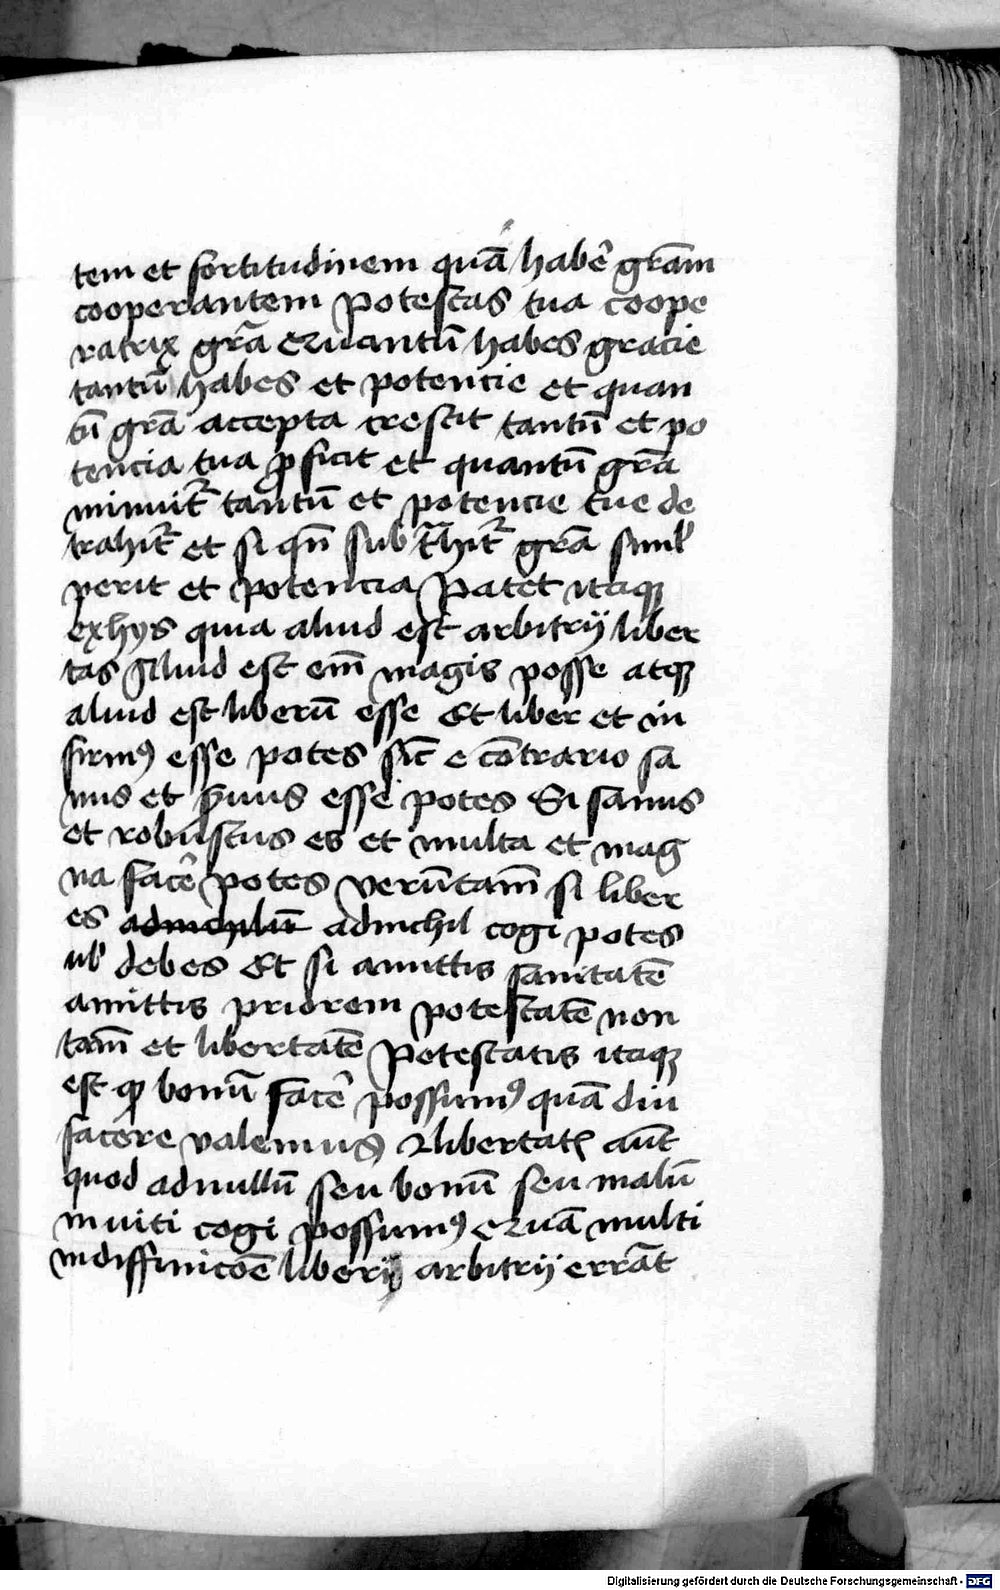 tem et fortitudinem quā habe᷑ gr̄am
cooperantem Potestas tua coope
ratrix gr̄a Quantū habes gracie
tantū habes et potencie et quan
tū gr̄a accepta crescit tantū et po
tencia tua ꝓficit et quantū gr̄a
minuit᷑ tantū et potencie tue de
trahit᷑ et si qn̄ subt̄hit᷑ gr̄a simlʼ
perit et potencia Patet itaqꝫ
exhys quia aliud est arbitrij liber
tas Aliud est em̄ magis posse atqꝫ
aliud est liberū esse Et liber et in
firmꝰ esse potes sic̄ e cōtrario sa
nus et esse potes Si sanus
et robustus es et multa et mag
na face᷑ potes verūtam̄ si liber
es adnichilū adnichil cogi potes
ulʼ debes Et si amittis sanitatē
amittis priorem potestatē non
tam̄ et libertatē Potestatis itaqꝫ
est ꝙ bonū face᷑ possumꝰ quā diu
facere valemus libertatꝭ aut̄
quod adnullū seu bonū seu malū
inuiti cogi possumꝰ Quā multi
indiffinicōe liberij arbitrij errāt
Digitalisierung gefördert durch die Deutsche Forschungsgemeinschaft - DFG